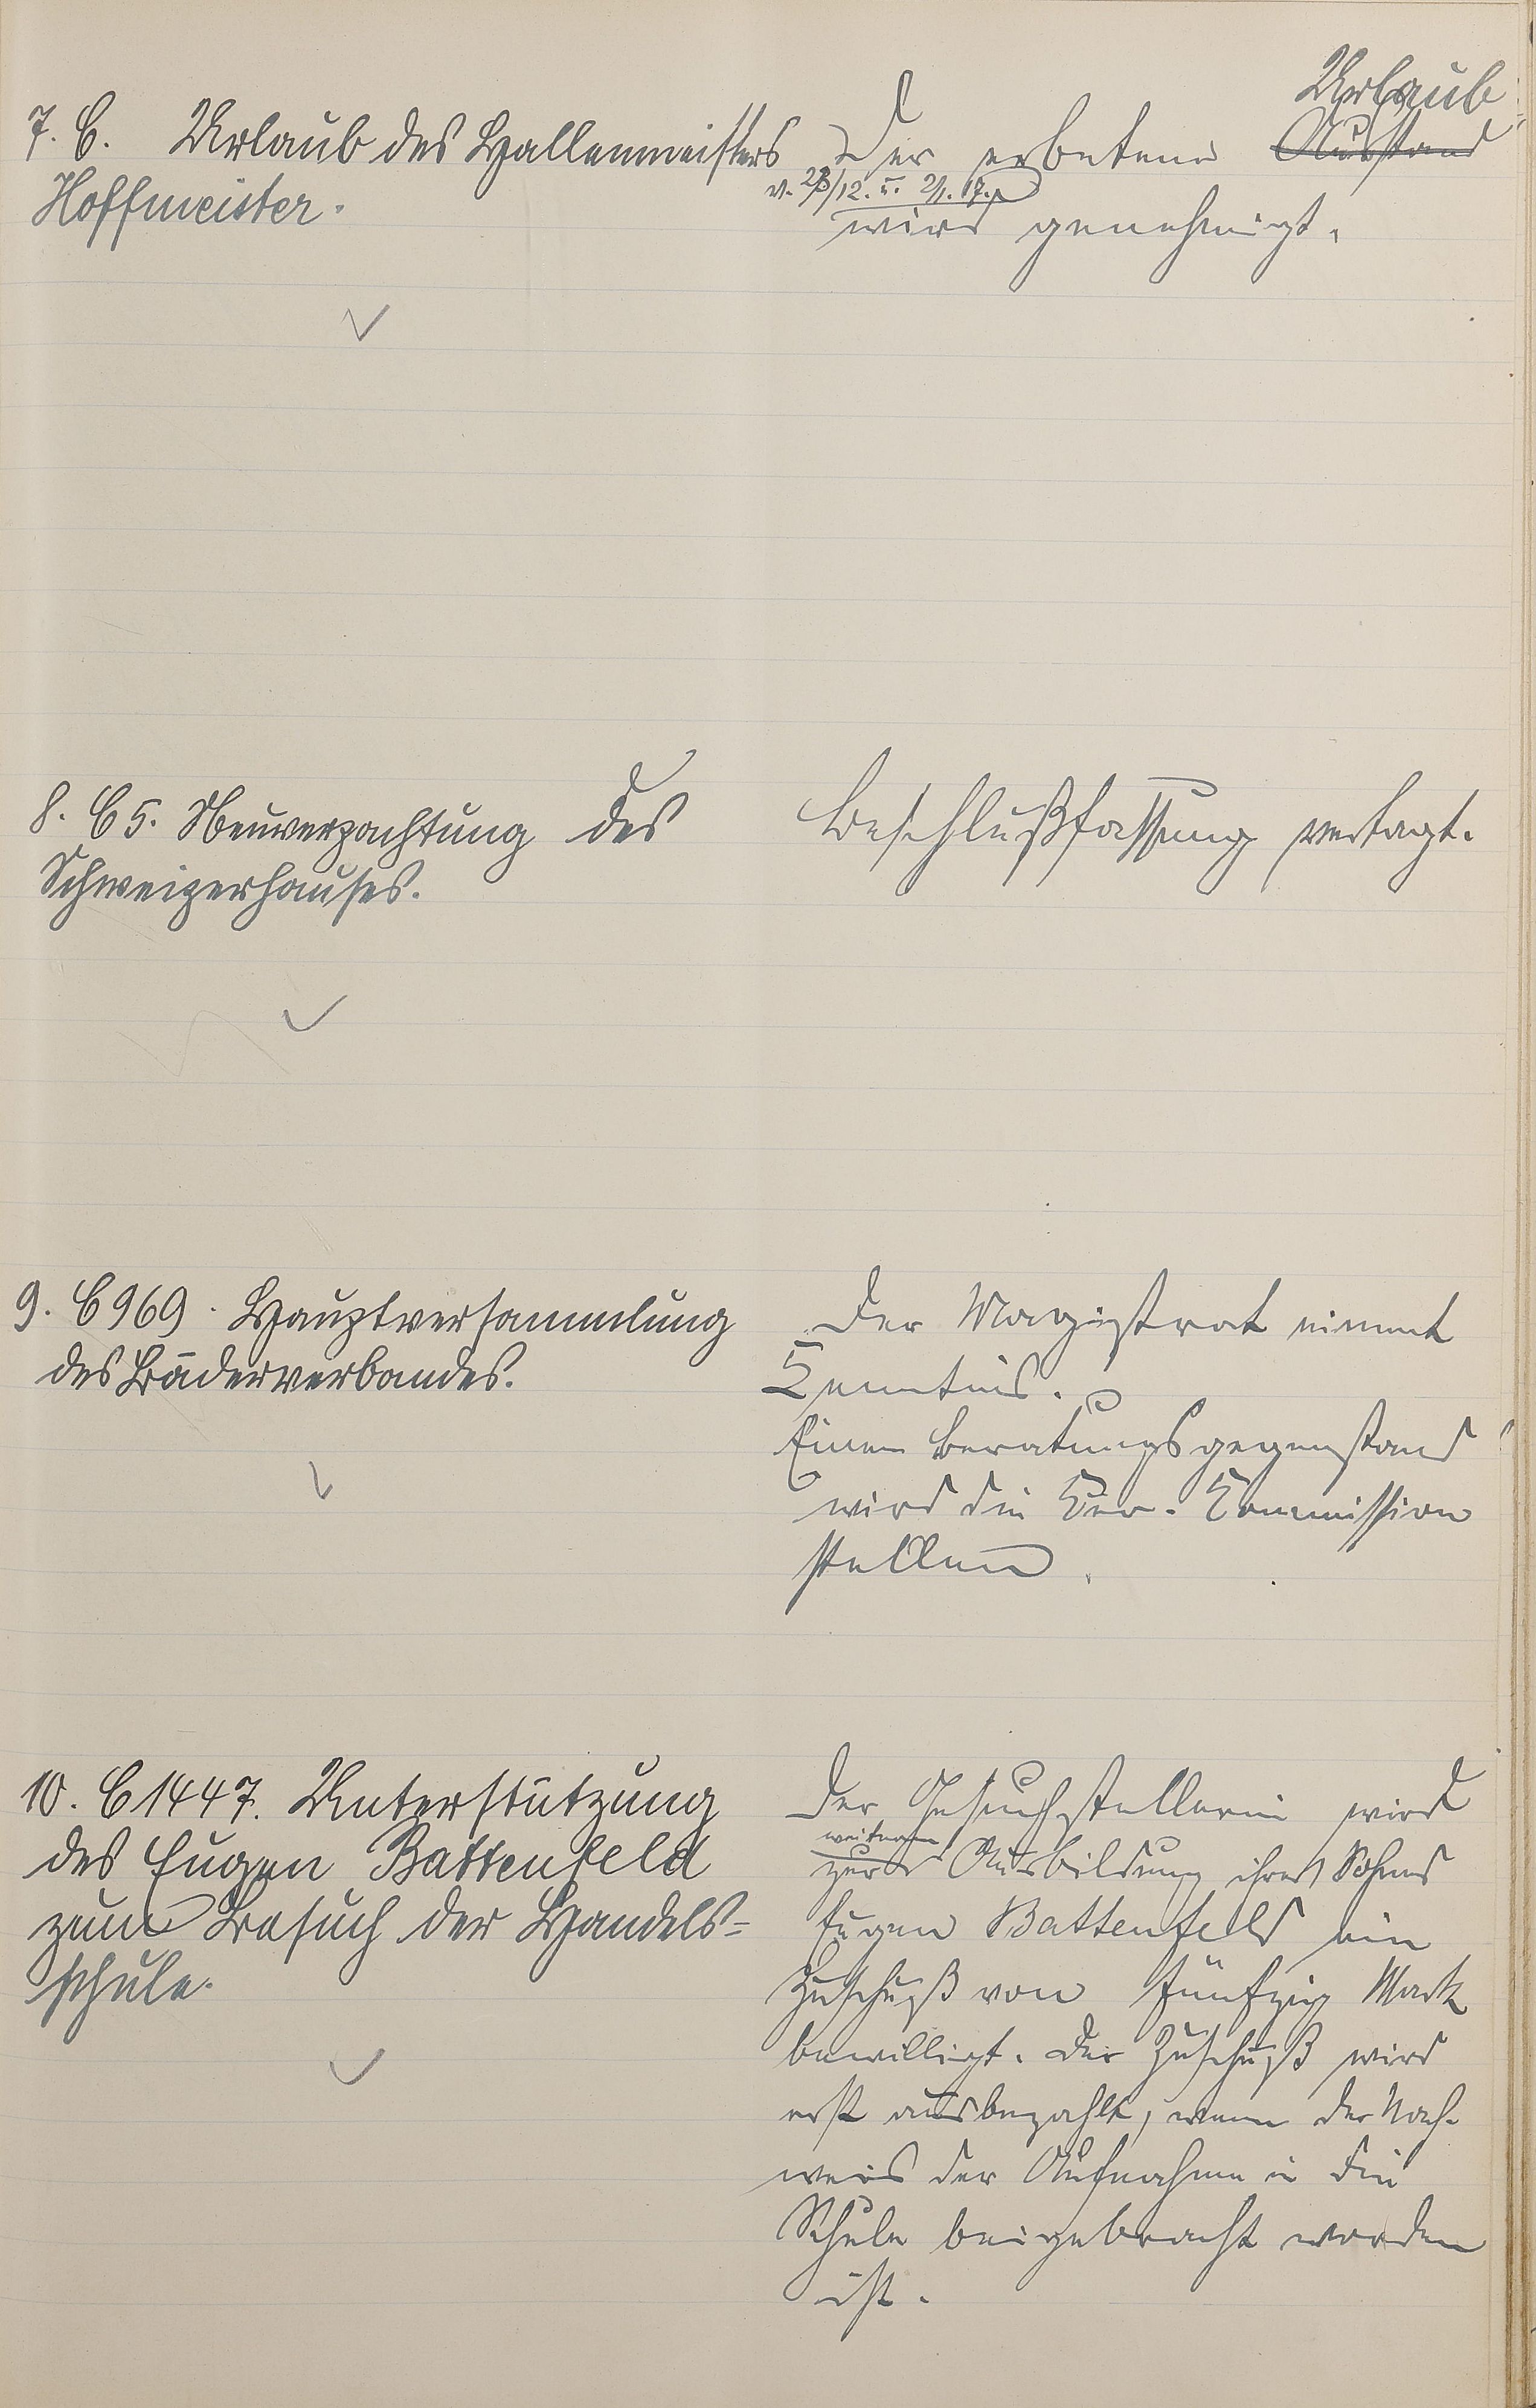 7. C. Urlaub des Hallenmeisters
Hoffmeister.
Urlaub
Der erbetene Ausstand
v. 28/12. u. 2/1. 17.
wird genehmigt.
8. C 5. Neuverpachtung des
Schweizerhauses.
Beschlußfassung vertagt.
9. C 969. Hauptversammlung
des Bäderverbandes.
Der Magistrat nimmt
Kenntnis.
Einen Beratungsgegenstand
wird die Kur-Kommission
stellen.
10. C 1447. Unterstützung
des Eugen Battenfeld
zum Besuch der Handels-
schule.
Der Gesuchstellerin wird
weiteren
zur Ausbildung ihres Sohnes
Eugen Battenfeld ein
Zuschuß von fünfzig Mark
bewilligt. Der Zuschuß wird
erst ausbezahlt, wenn der Nach-
weis der Aufnahme in die
Schule beigebracht worden
ist.